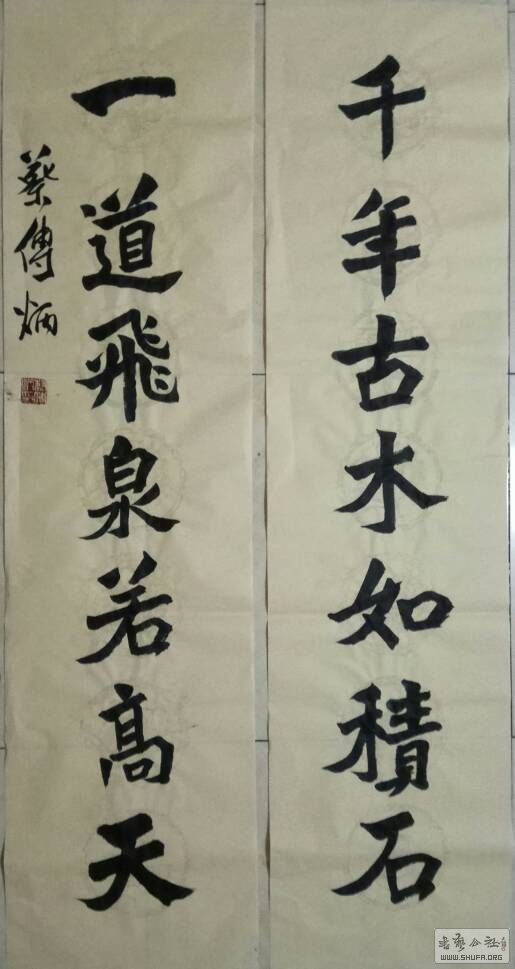 千年古木如積石
一道飛泉若高天
蔡傳炳
書藝公社
WWW.SHUFA.ORG